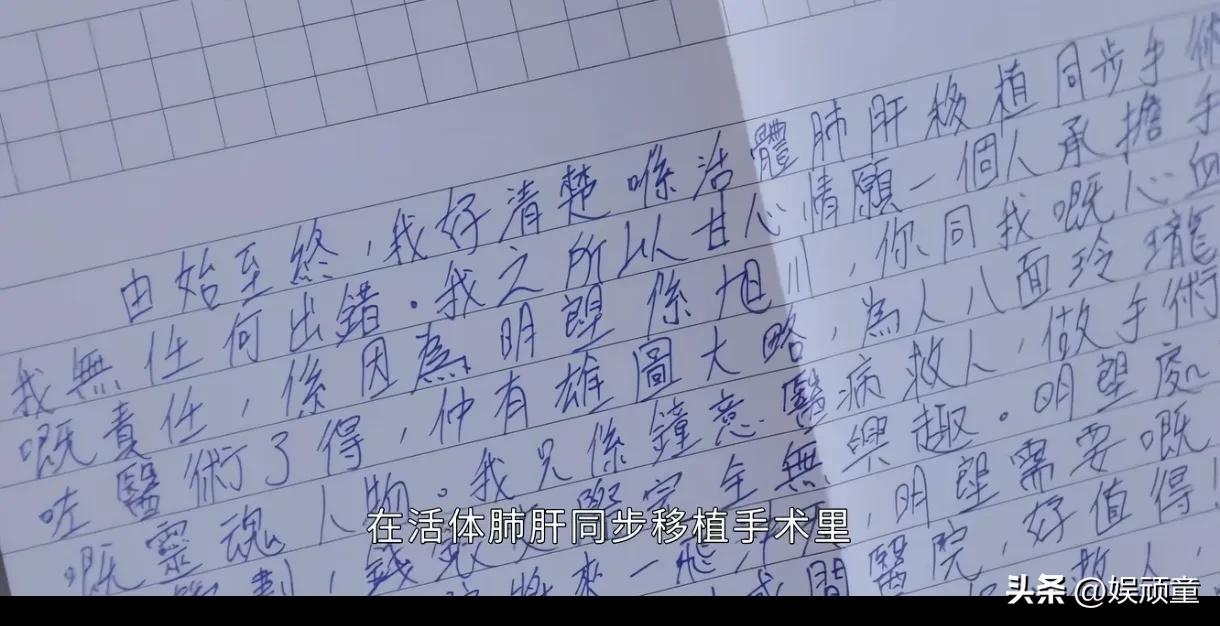 由始至終,我好清楚喺活體肺肝移植同步手術
我無任何出錯。我之所以甘心情願一個人承擔手
嘅責任,係因為明望係旭川,你同我嘅心血
咗醫術了得,仲有雄圖大略,為人八面玲瓏
嘅靈魂人物。我只係鐘意醫病救人,做手術
劃,錢 完全無興趣。明望處
將來一飛 ,明望需要嘅
間醫院,好值得!
救人,
在活体肺肝同步移植手术里
头条 @娱顽童